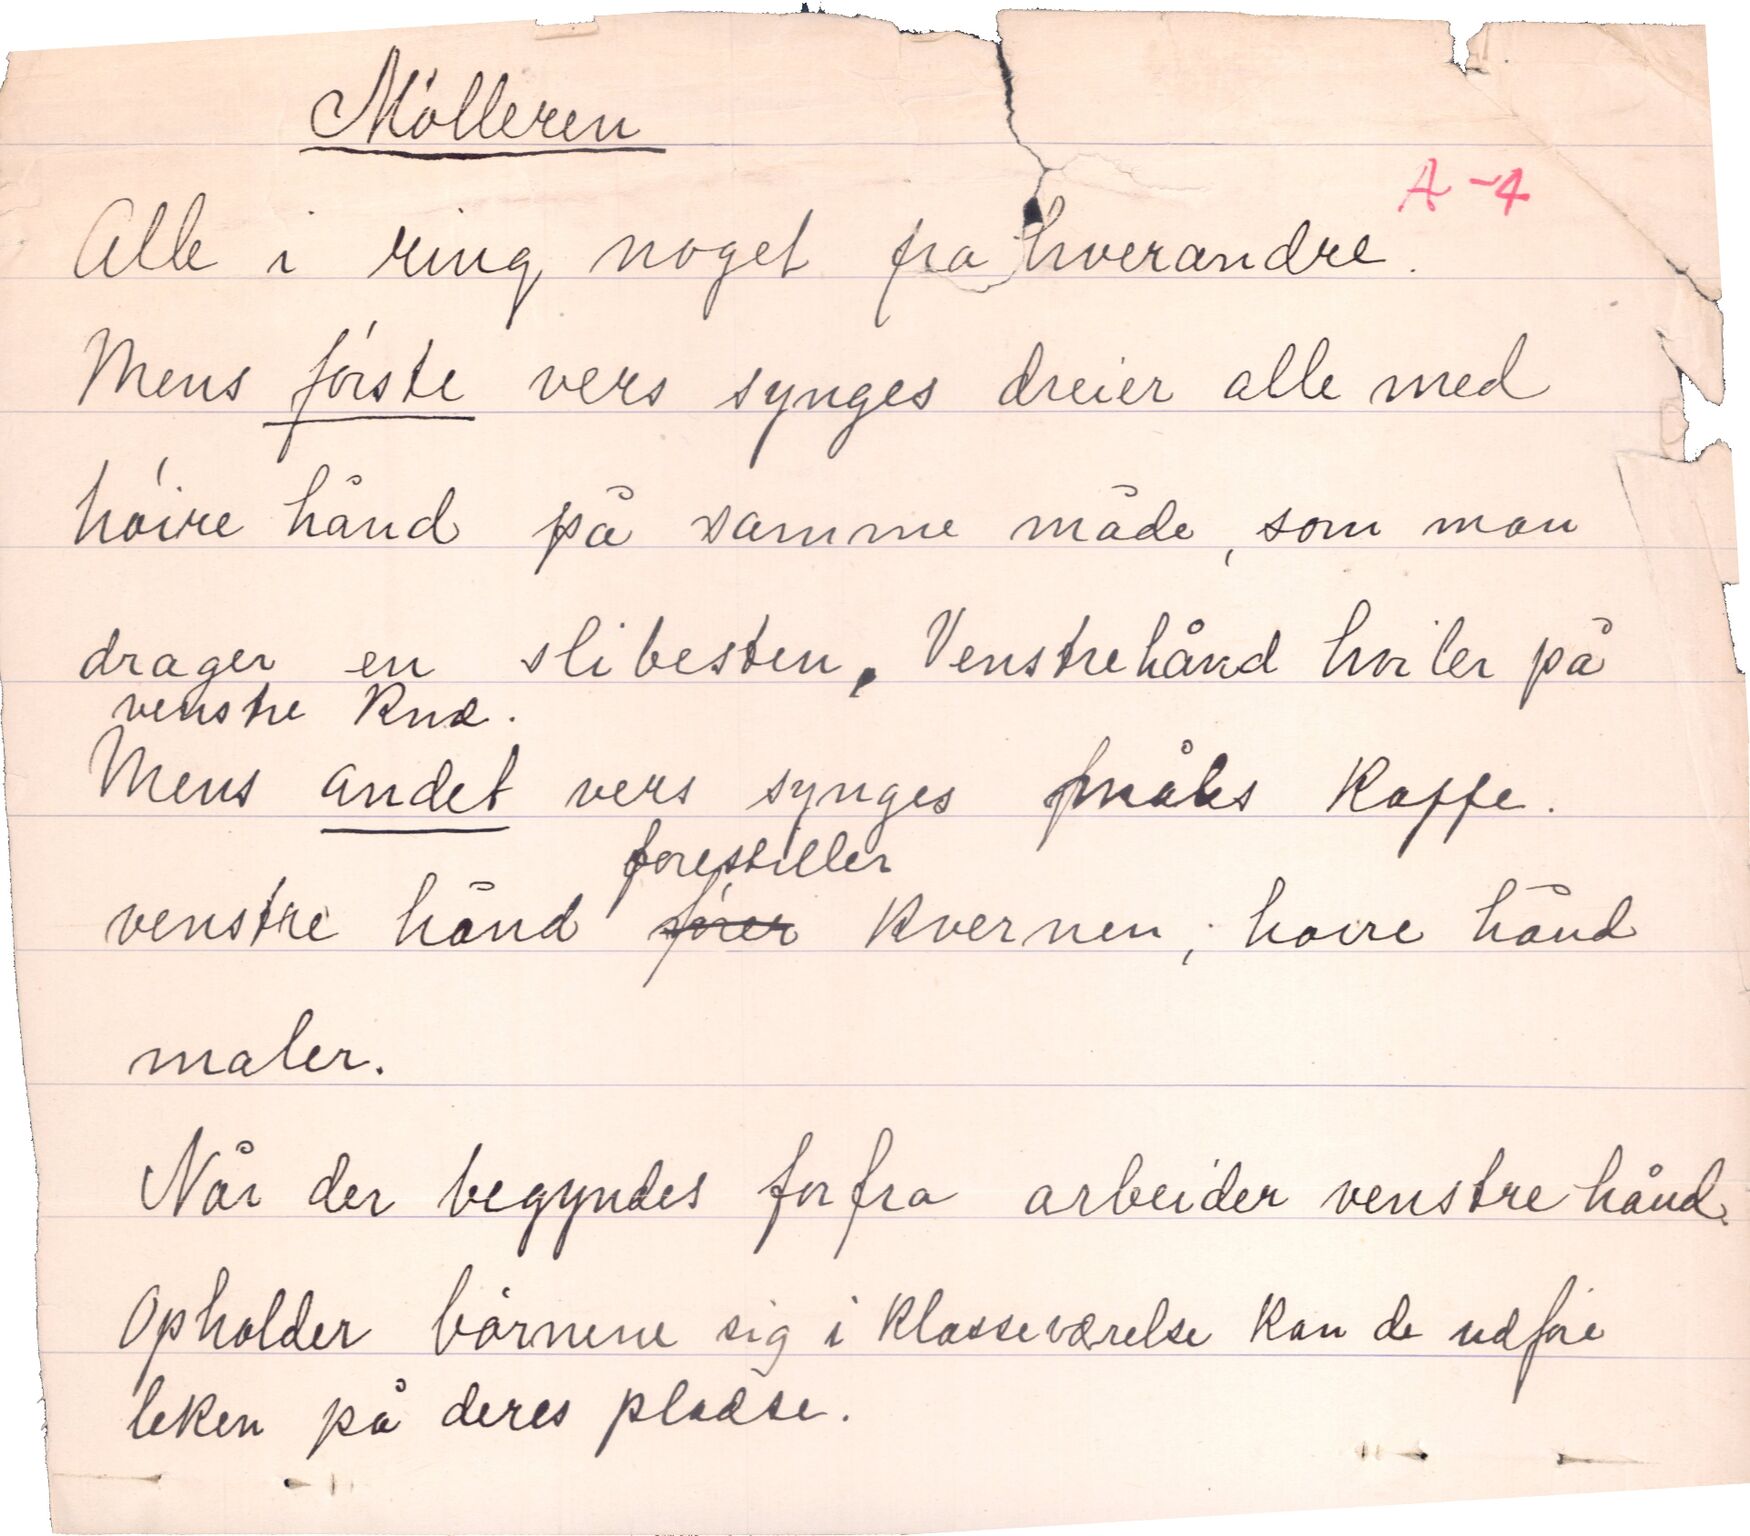 Mölleren
A-4
Alle i ring noget fra hverandre.
Mens förste vers synges dreier alle med
höire hånd på samme måde, som man
drager en slibesten. Venstrehånd hviler på
venstre knæ.
Mens andet vers synges males kaffe.
forestiller
venstre hånd förer kvernen, hoire hånd
maler.
Når der begyndes forfra arbeider venstre hånd.
Opholder börnene sig i klasseværelse kan de udföre
leken på deres pladse.